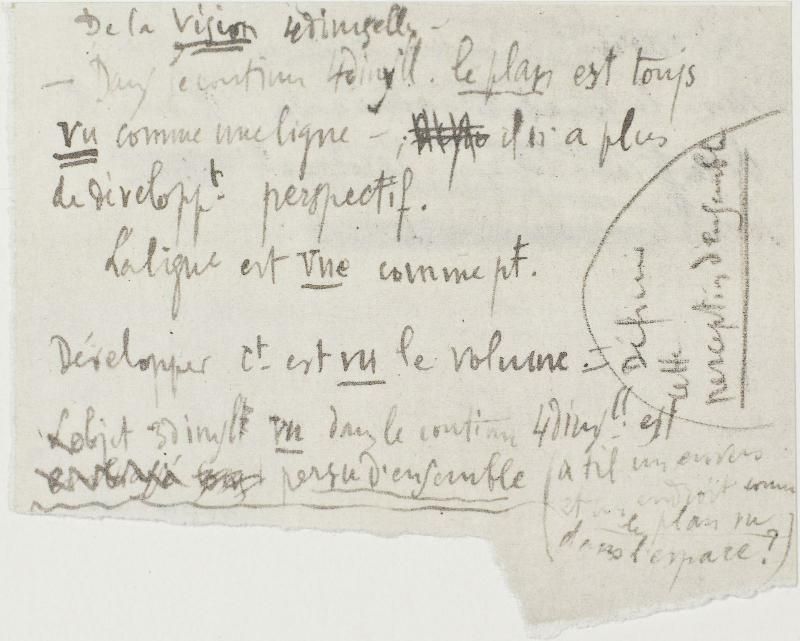 De la Vision 4dimselle -
— Dans le continu 4dimsll. le plan est toujs
vu comme une ligne — , il n'a plus
de développt. perspectif.
La ligne est vue comme pt.
Développer ct. est vu le volume. =
définir
cette
perception d'ensemble
L'objet 3dimslt vu dans le continu 4dimsll. est
persu d'ensemble
(a til un envers
et un endroit comme
le plan vu
dans l'espace?)